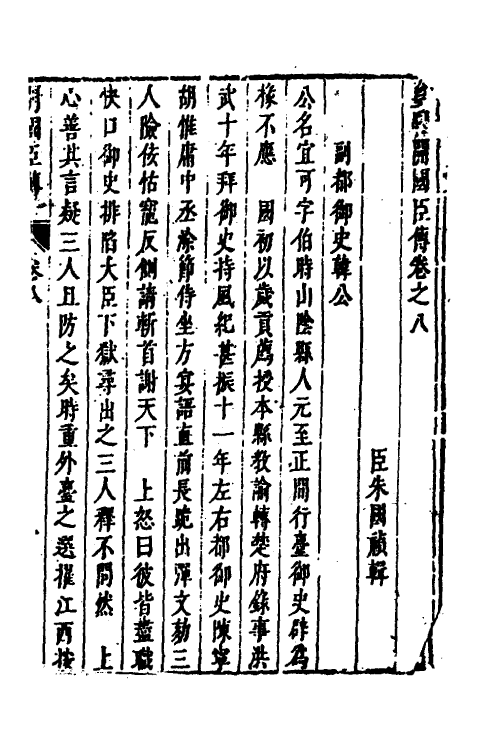 皇明開國臣傳卷之八
臣朱國禎輯
副都御史韓公
公名宜可字伯時山陰縣人元至正間行臺御史辟爲
掾不應　國初以歲貢薦授本縣教諭轉楚府錄事洪
武十年拜御史持風紀甚振十一年左右都御史陳寧
胡惟庸中丞涂節侍坐方宴語直前長跪出彈文劾三
人險佞怙寵反側請斬首謝天下　上怒曰彼皆盡職
快口御史排陷大臣下獄尋出之三人釋不問然　上
心善其言疑三人且防之矣時重外臺之選擢江西按
開國臣傳
卷八